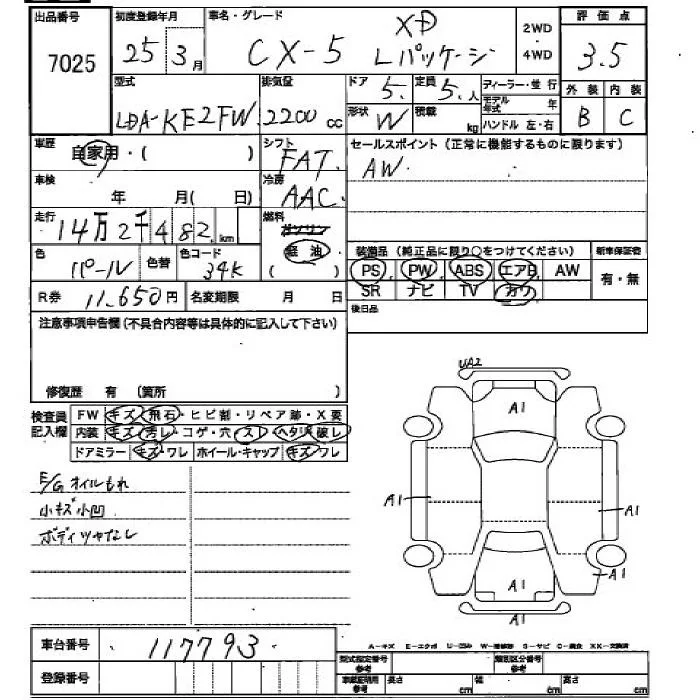 出品番号 初度登録年月 車名・グレード 2WD・4WD 評価点
7025 25年 3月 CX-5 XD Lパッケージ 3.5
型式 排気量 ドア 5. 定員 5.人 ディーラー・並行 外装 内装
LDA-KE2FW 2200cc 形状 W 積載 kg モデル年式 年 B C
ハンドル 左・右
車歴 自家用・( ) シフト FAT. セールスポイント(正常に機能するものに限ります)
車検 年 月( 日) 冷房 AAC. AW.
走行 14万2千482km 燃料 ガソリン 軽油 ( )
色 パール 色替 色コード 34K 装備品(純正品に限り○をつけてください) 新車保証書
PS PW ABS エアB AW 有・無
R券 11,650円 名変期限 月 日 SR ナビ TV カワ
注意事項申告欄(不具合内容等は具体的に記入して下さい) 後日品
修復歴 有 (箇所 )
検査員記入欄 FW キズ・飛石・ヒビ割・リペア跡・X要
内装 キズ・汚レ・コゲ・穴・スレ・ヘタリ・破レ
ドアミラー キズ・ワレ ホイール・キャップ キズ・ワレ
E/Gオイルもれ
小キズ小凹
ボディツヤなし
UA2
A1
A1 A1
A1
A1
A1
車台番号 117793
A-キズ E-エクボ U-凹み W-補修跡 S-サビ C-腐食 XX-交換済
登録番号 型式指定番号参考 類別区分番号参考
車庫証明用参考 長さ cm 幅 cm 高さ cm